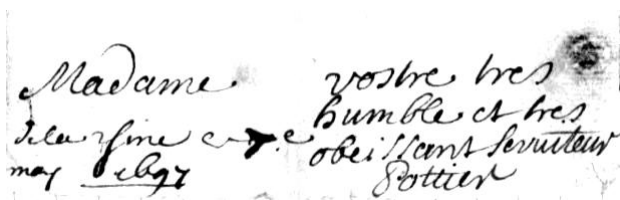 Madame
vostre tres
humble et tres
obeissant serviteur
Pottier
de la
may 1697